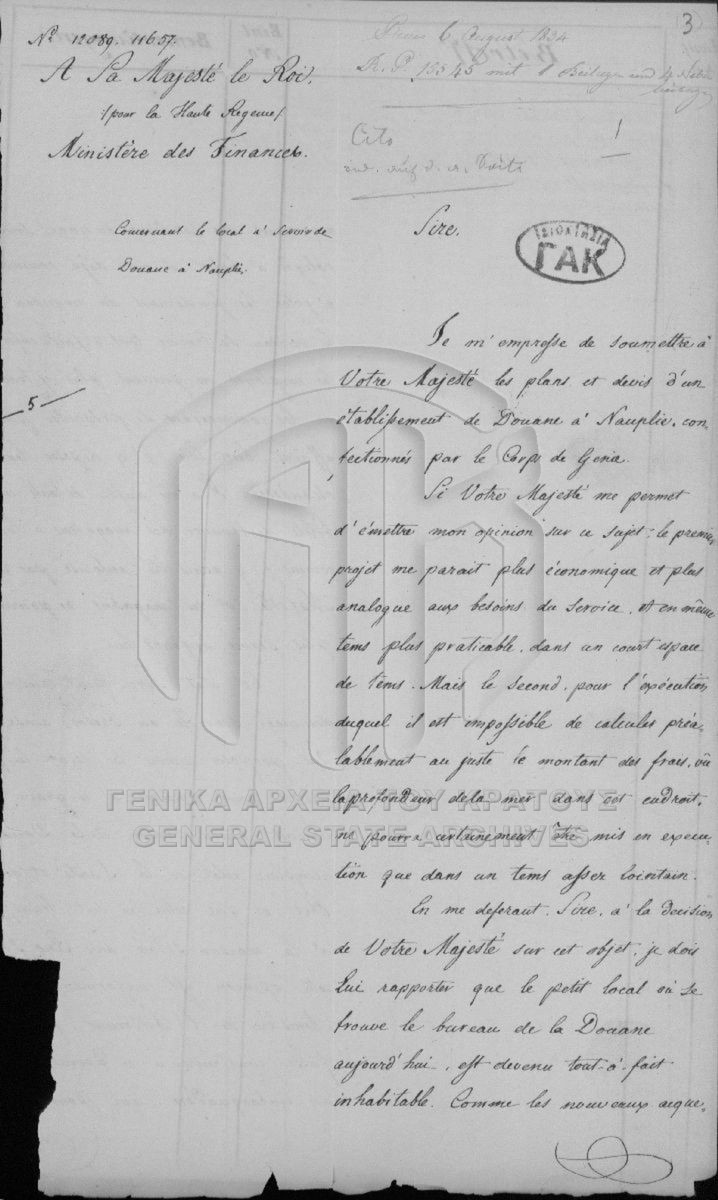 3
Nº 12089. 11657.
A Sa Majesté le Roi.
/ pour la Haute Regence /
Ministère des Finances.
Concernant le local à servir de
Douane à Nauplie.
6 August 1834
R. P. 15545 mit Beilagen
Cito
1
Sire.
ΓΑΚ
5
Je m'empresse de soumettre à
Votre Majesté les plans et devis d'un
établissement de Douane à Nauplie, con-
fectionnés par le Corps de Genie.
Si Votre Majesté me permet
d'émettre mon opinion sur ce sujet; le premier
projet me parait plus économique et plus
analogue aux besoins du Service, et en même
tems plus praticable, dans un court espace
de tems. Mais le second, pour l'exécution
duquel il est impossible de calculer préa-
lablement au juste le montant des frais, vû
la profondeur de la mer dans cet endroit,
ne pourra certainement être mis en execu-
tion que dans un tems asser lointain.
En me deferant, Sire, à la decision
de Votre Majesté sur cet objet, je dois
Lui rapporter que le petit local où se
trouve le bureau de la Douane
aujourd'hui, est devenu tout-à-fait
inhabitable. Comme les nouveaux acque-
ΓΕΝΙΚΑ ΑΡΧΕΙΑ ΤΟΥ ΚΡΑΤΟΥΣ
GENERAL STATE ARCHIVES